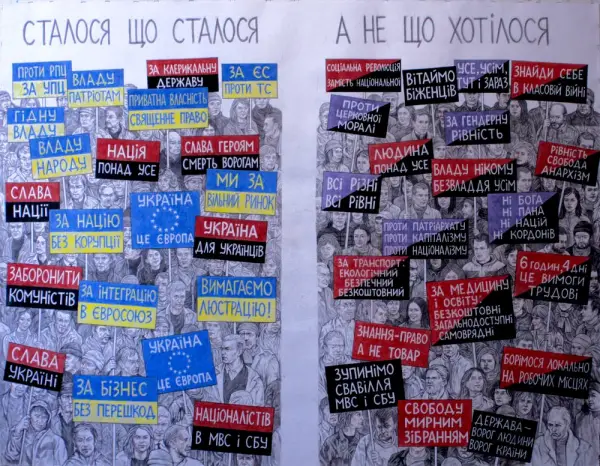 СТАЛОСЯ ЩО СТАЛОСЯ
ПРОТИ РПЦ
ЗА УПЦ
ВЛАДУ
ПАТРІОТАМ
ЗА КЛЕРИКАЛЬНУ
ДЕРЖАВУ
ЗА ЄС
ПРОТИ ТС
ГІДНУ
ВЛАДУ
ПРИВАТНА ВЛАСНІСТЬ
СВЯЩЕННЕ ПРАВО
ВЛАДУ
НАРОДУ
НАЦІЯ
ПОНАД УСЕ
СЛАВА ГЕРОЯМ
СМЕРТЬ ВОРОГАМ
СЛАВА
НАЦІЇ
МИ ЗА
ВІЛЬНИЙ РИНОК
ЗА НАЦІЮ
БЕЗ КОРУПЦІЇ
УКРАЇНА
ЦЕ ЄВРОПА
УКРАЇНА
ДЛЯ УКРАЇНЦІВ
ЗАБОРОНИТИ
КОМУНІСТІВ
ЗА ІНТЕГРАЦІЮ
В ЄВРОСОЮЗ
ВИМАГАЄМО
ЛЮСТРАЦІЮ!
СЛАВА
УКРАЇНІ
УКРАЇНА
ЦЕ ЄВРОПА
ЗА БІЗНЕС
БЕЗ ПЕРЕШКОД
НАЦІОНАЛІСТІВ
В МВС І СБУ
А НЕ ЩО ХОТІЛОСЯ
СОЦІАЛЬНА РЕВОЛЮЦІЯ
ЗАМІСТЬ НАЦІОНАЛЬНОЇ
ВІТАЙМО
БІЖЕНЦІВ
УСЕ, УСІМ,
ТУТ І ЗАРАЗ
ЗНАЙДИ СЕБЕ
В КЛАСОВІЙ ВІЙНІ
ПРОТИ
ЦЕРКОВНОЇ
МОРАЛІ
ЗА ГЕНДЕРНУ
РІВНІСТЬ
ЛЮДИНА
ПОНАД УСЕ
ВЛАДУ НІКОМУ
БЕЗВЛАДДЯ УСІМ
РІВНІСТЬ
СВОБОДА
АНАРХІЗМ
ВСІ РІЗНІ
ВСІ РІВНІ
ПРОТИ ПАТРІАРХАТУ
ПРОТИ КАПІТАЛІЗМУ
ПРОТИ НАЦІОНАЛІЗМУ
НІ БОГА
НІ ПАНА
НІ НАЦІЙ
НІ КОРДОНІВ
ЗА ТРАНСПОРТ:
ЕКОЛОГІЧНИЙ
БЕЗПЕЧНИЙ
БЕЗКОШТОВНИЙ
ЗА МЕДИЦИНУ
І ОСВІТУ:
БЕЗКОШТОВНІ
ЗАГАЛЬНОДОСТУПНІ
САМОВРЯДНІ
6 ГОДИН, 4 ДНІ
ЦЕ ВИМОГИ
ТРУДОВІ
ЗНАННЯ-ПРАВО
А НЕ ТОВАР
ЗУПИНІМО
СВАВІЛЛЯ
МВС І СБУ
БОРІМОСЯ ЛОКАЛЬНО
НА РОБОЧИХ МІСЦЯХ
СВОБОДУ
МИРНИМ
ЗІБРАННЯМ
ДЕРЖАВА-
ВОРОГ ЛЮДИНИ
ВОРОГ КРАЇНИ